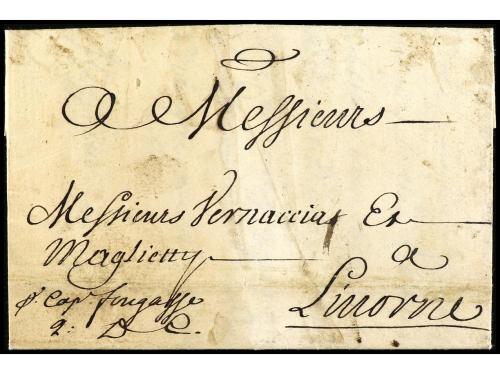 A Messieurs
Messieurs Vernaccia Et
Maglietty
a
p. Cap. fougasse
Livorne
2: D C.